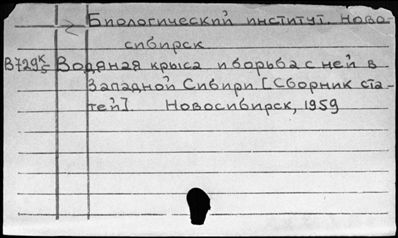 Биологический институт. Ново-
сибирск
В729к/5 Водяная крыса и борьба с ней в
Западной Сибири. [Сборник ста-
тей]. Новосибирск, 1959